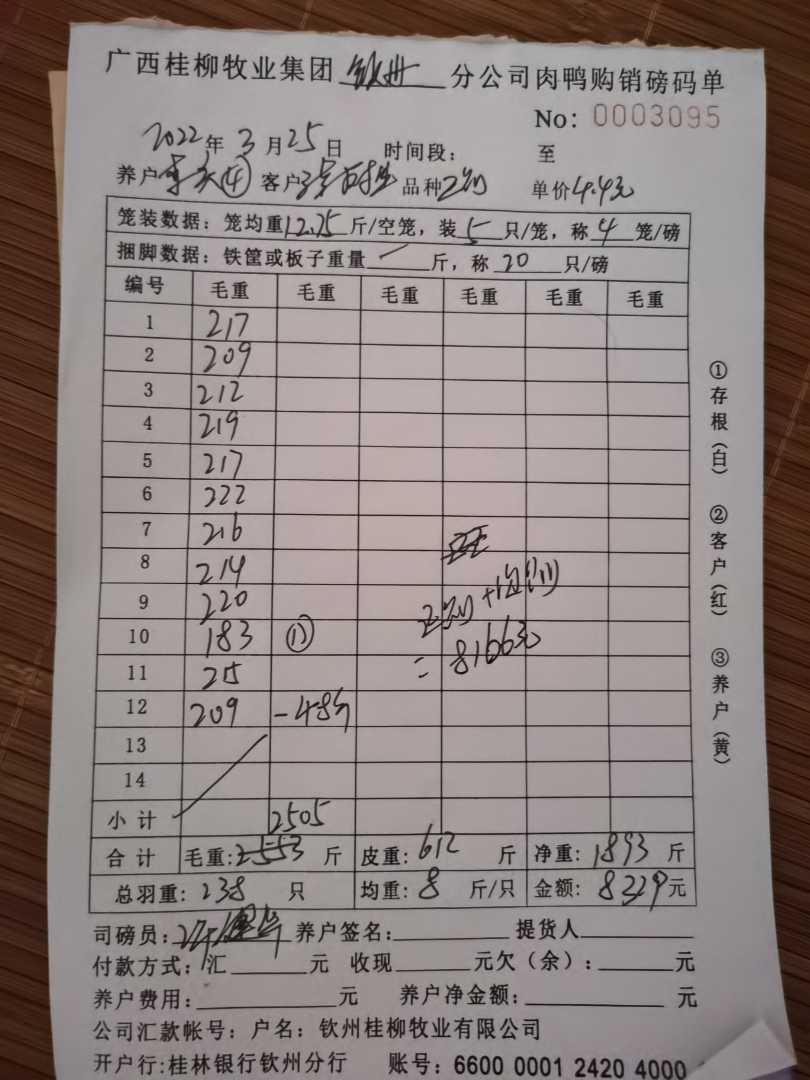 广西桂柳牧业集团 钦州 分公司肉鸭购销磅码单
No: 0003095
2022年3月25日 时间段: 至
养户 ④ 客户 品种 单价4.4元
笼装数据: 笼均重12.75斤/空笼, 装5只/笼, 称4笼/磅
捆脚数据: 铁筐或板子重量 斤, 称20只/磅
编号 毛重 毛重 毛重 毛重 毛重 毛重
1 217
2 209
3 212
4 219
5 217
6 222
7 216
8 214
9 220
10 183 ①
11 215
12 209 -48斤
= 8166元
13
14
小计 2505
合计 毛重:2553斤 皮重:612斤 净重:1893斤
总羽重:238只 均重:8斤/只 金额:8329元
司磅员: 养户签名: 提货人
付款方式:汇 元 收现 元欠(余): 元
养户费用: 元 养户净金额: 元
公司汇款帐号: 户名: 钦州桂柳牧业有限公司
开户行:桂林银行钦州分行 账号: 6600 0001 2420 4000
①存根(白) ②客户(红) ③养户(黄)